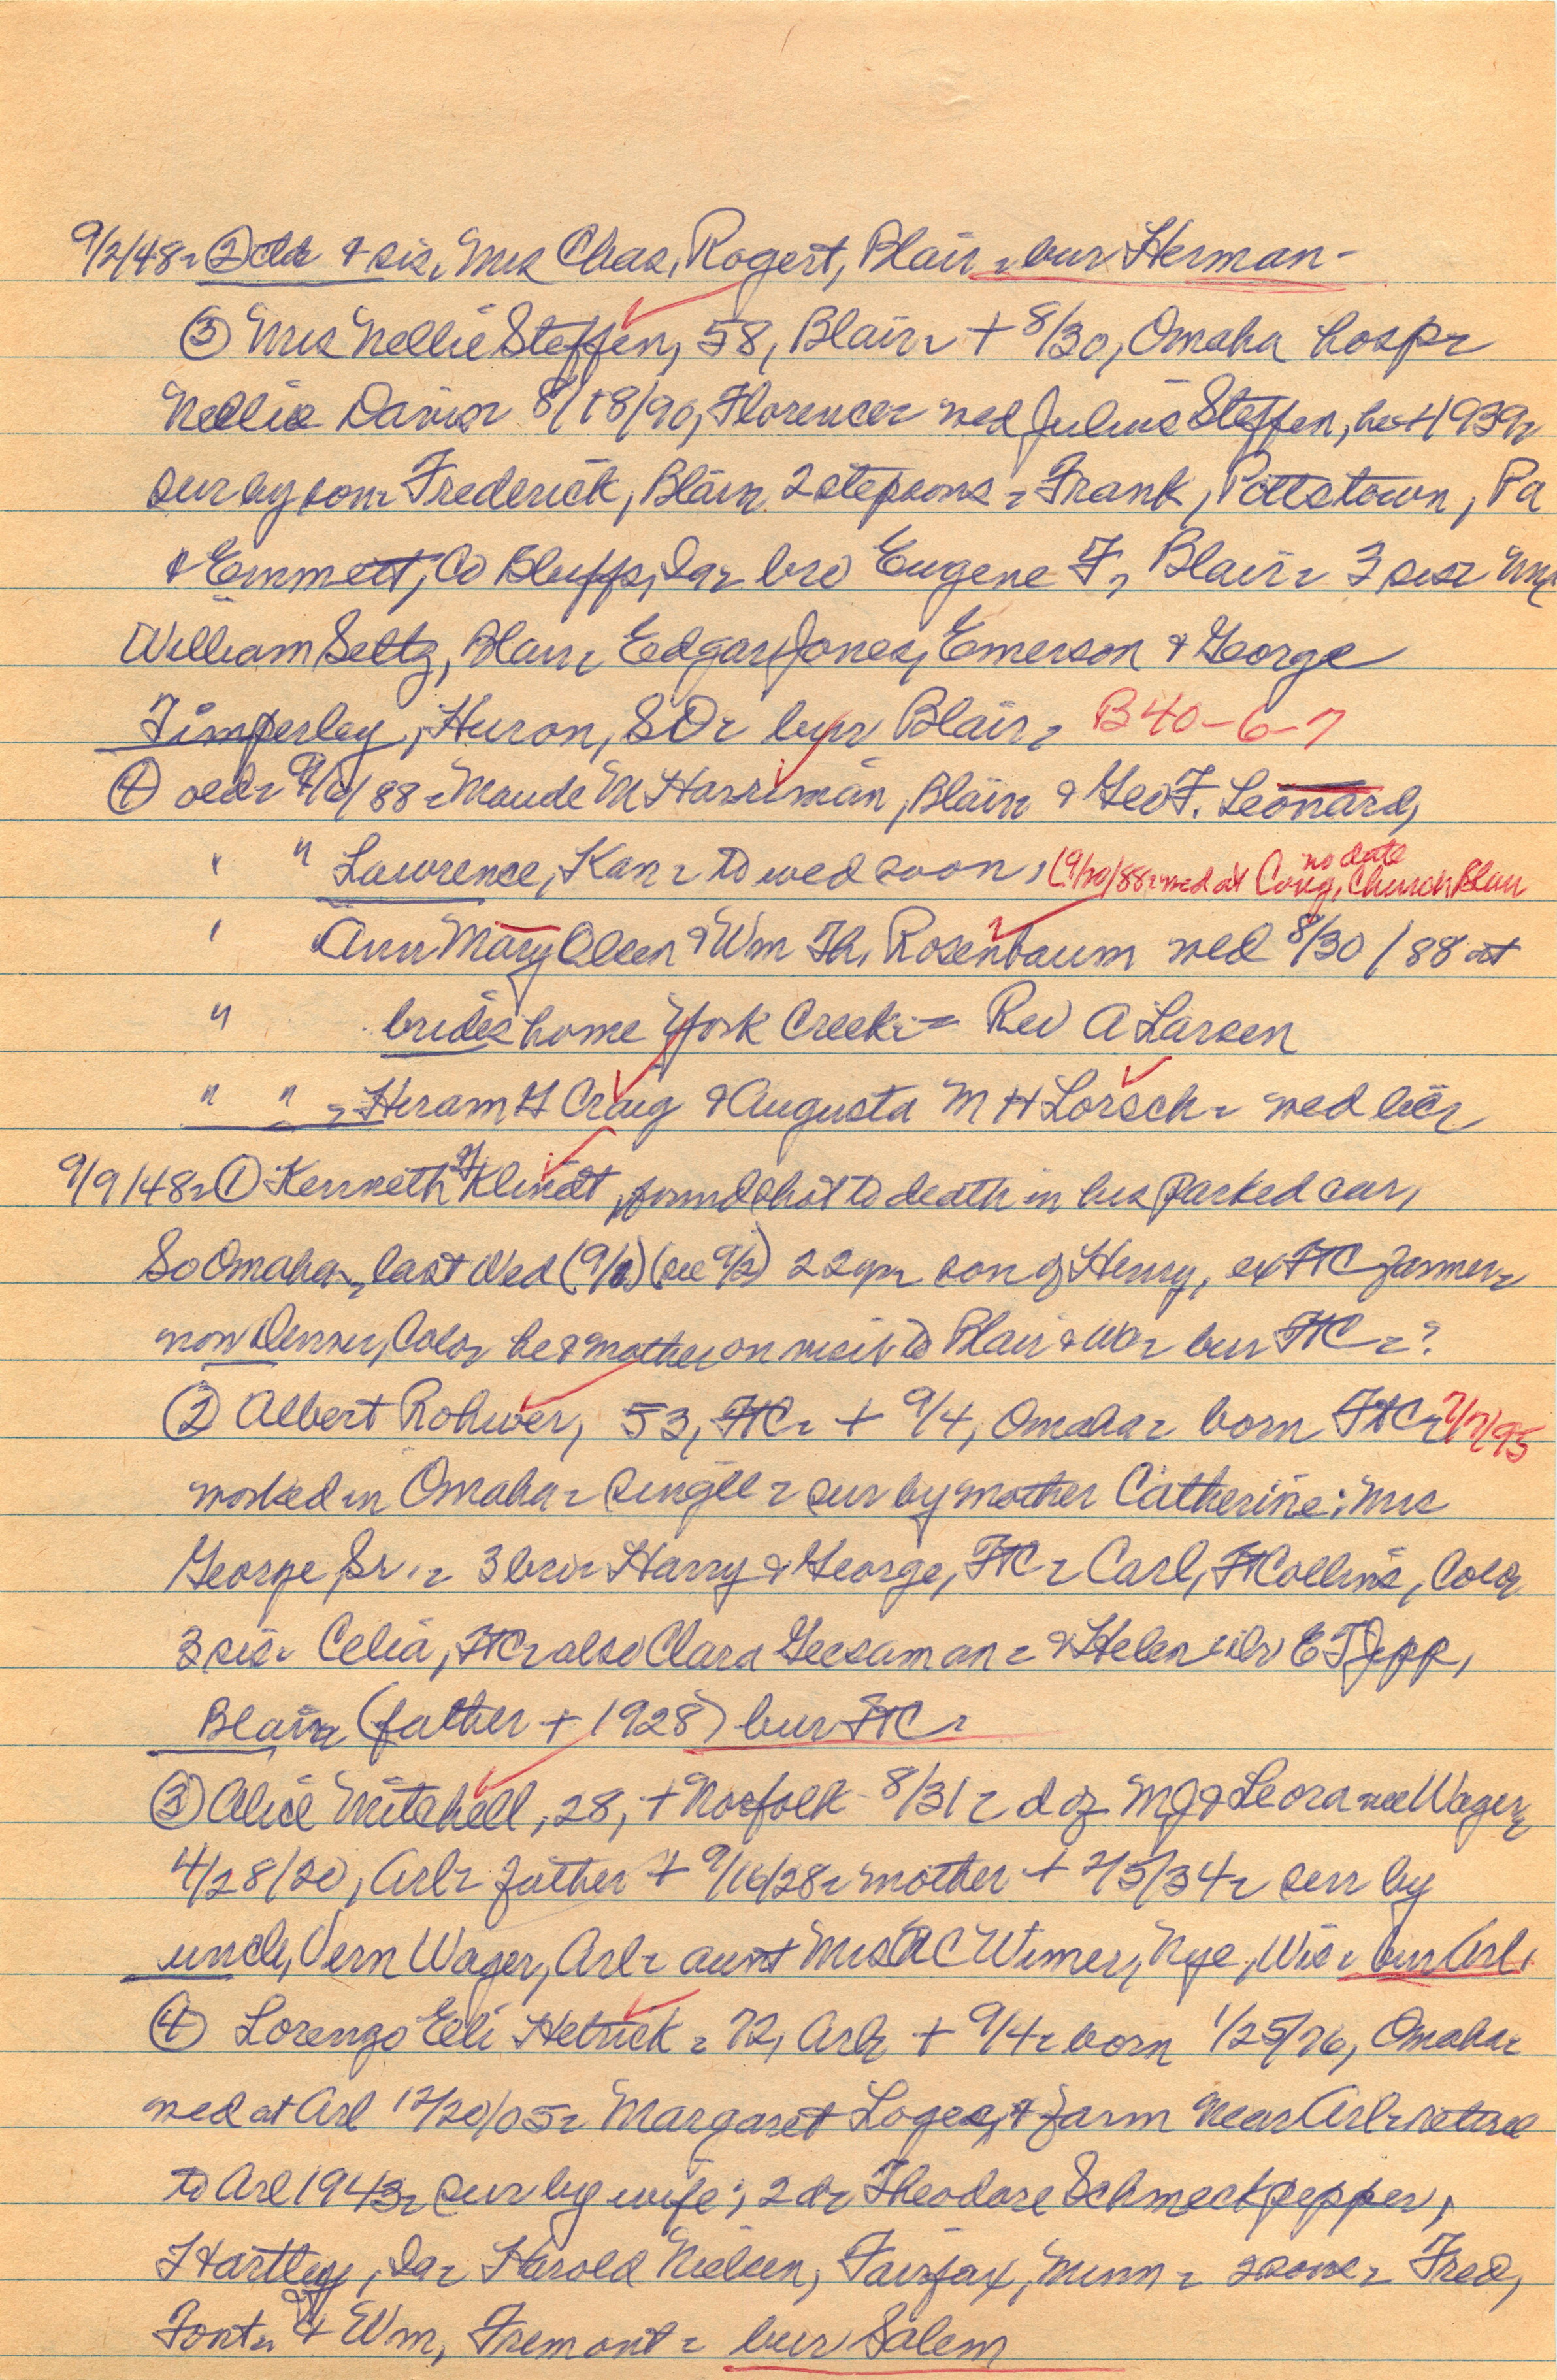 9/2/48 - ② & sis, Mrs Chas. Rogert, Blair - bur Herman -
③ Mrs Nellie Steffen, 58, Blair - + 8/30, Omaha hosp -
Nellie Davis - 8/18/90, Florence - wed Julius Steffen, he + 1939 -
sur by son - Frederick, Blair. 2 stepsons - Frank, Pottstown, Pa
& Emmett, Co Bluffs, Ia - bro Eugene F, Blair - 3 sis - Mrs
William Seltz, Blair - Edgar Jones, Emerson & George
Timperley, Huron, SD - bur Blair - B40-6-7
④ Maude M Harriman, Blair & Geo F. Leonard,
" " Lawrence, Kan - to wed soon, (9/20/88 - wed at Cong, Church Blair no date
" Ann Mary Olsen & Wm Th. Rosenbaum wed 8/30/88 at
" brides home York Creek - Rev A Larsen
" " - Hiram H Craig & Augusta M H Lorsch - wed lic -
9/9/48 - ① Kenneth Klindt, found shot to death in his parked car,
So Omaha, last Wed (9/1) (see 9/2) 22yr son of Henry, ex FtC farmer -
now Denver, Colo - he & mother on visit to Blair & Wa - bur FtC - ?
② Albert Rohwer, 53, FtC - + 9/4, Omaha - born FtC - 7/7/95
worked in Omaha - single - sur by mother Catherine: Mrs
George, Sr. - 3 bro - Harry & George, FtC - Carl, Ft Collins, Colo
3 sis - Celia, FtC - also Clara Geesaman - & Helen E T Jepp,
Blair (father + 1928) bur FtC -
③ Alice Mitchell, 28, + Norfolk 8/31 - d of M J & Leora nee Wager,
4/28/20, Arl - father + 9/16/28 - mother + 2/5/34 - surr by
uncle, Vern Wager, Arl - aunt Mrs A C Wimer, Nye, Wis - bur Arl.
④ Lorenzo Eli Hetrick - 72, Arl - + 9/4 - born 1/25/76, Omaha -
wed at Arl 12/20/05 - Margaret Loges, & farm near Arl - retired
to Arl 1943 - sur by wife; 2 d - Theodore Schmeckpepper,
Hartley, Ia - Harold Nielsen, Fairfax, Minn - 2 sons - Fred,
Font. & Wm, Fremont - bur Salem